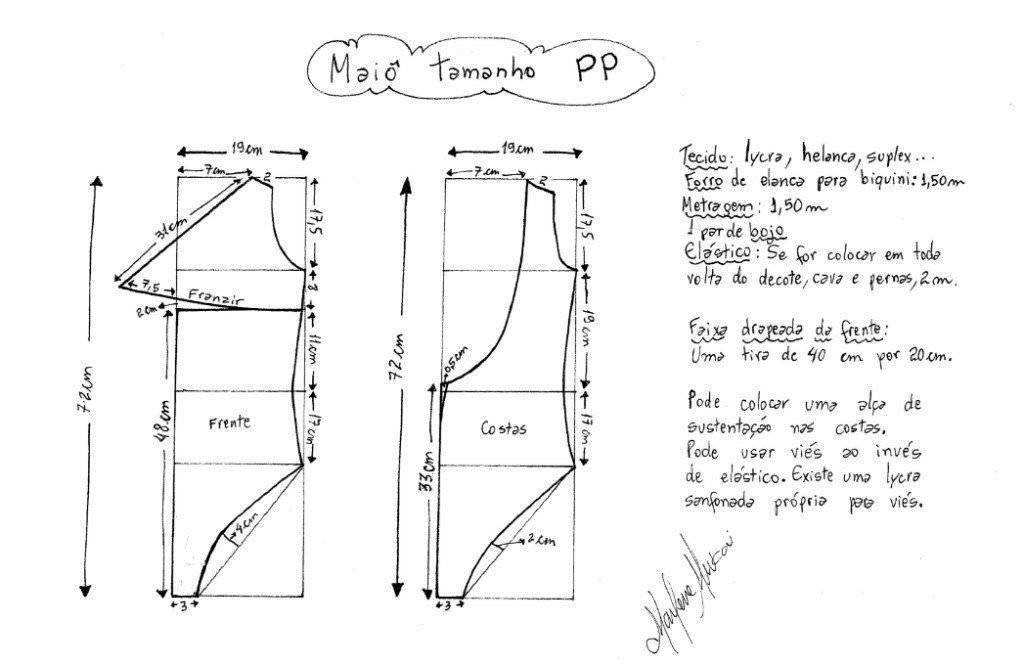 Maiô tamanho PP
19cm
7cm
2
31cm
17,5
7,5
Franzir
8
2cm
11cm
72cm
48cm
Frente
17cm
4cm
3
19cm
7cm
2
17,5
19cm
0,5cm
72cm
Costas
17cm
33cm
2cm
3
Tecido: lycra, helanca, suplex...
Forro de elanca para biquini: 1,50m
Metragem: 1,50m
1 par de bojo
Elástico: Se for colocar em toda
volta do decote, cava e pernas, 2m.
Faixa drapeada da frente:
Uma tira de 40 cm por 20cm.
Pode colocar uma alça de
sustentação nas costas.
Pode usar viés ao invés
de elástico. Existe uma lycra
sanfonada própria para viés.
Marlene Mukai